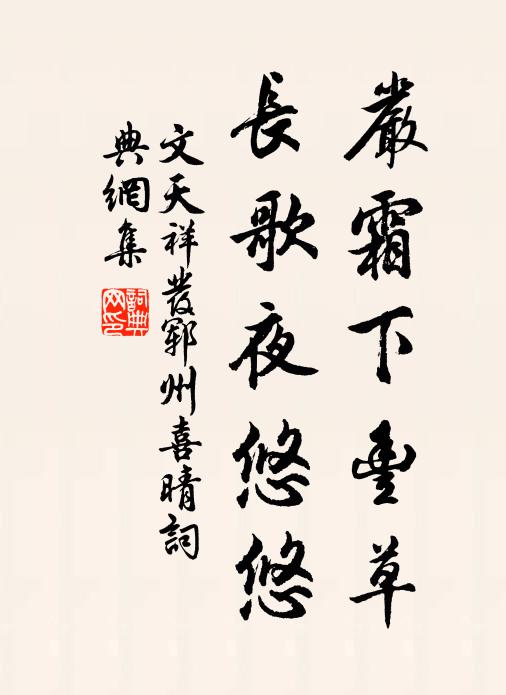 嚴霜下豐草
長歌夜悠悠
文天祥發鄆州喜晴詞
典網集
詞典网印